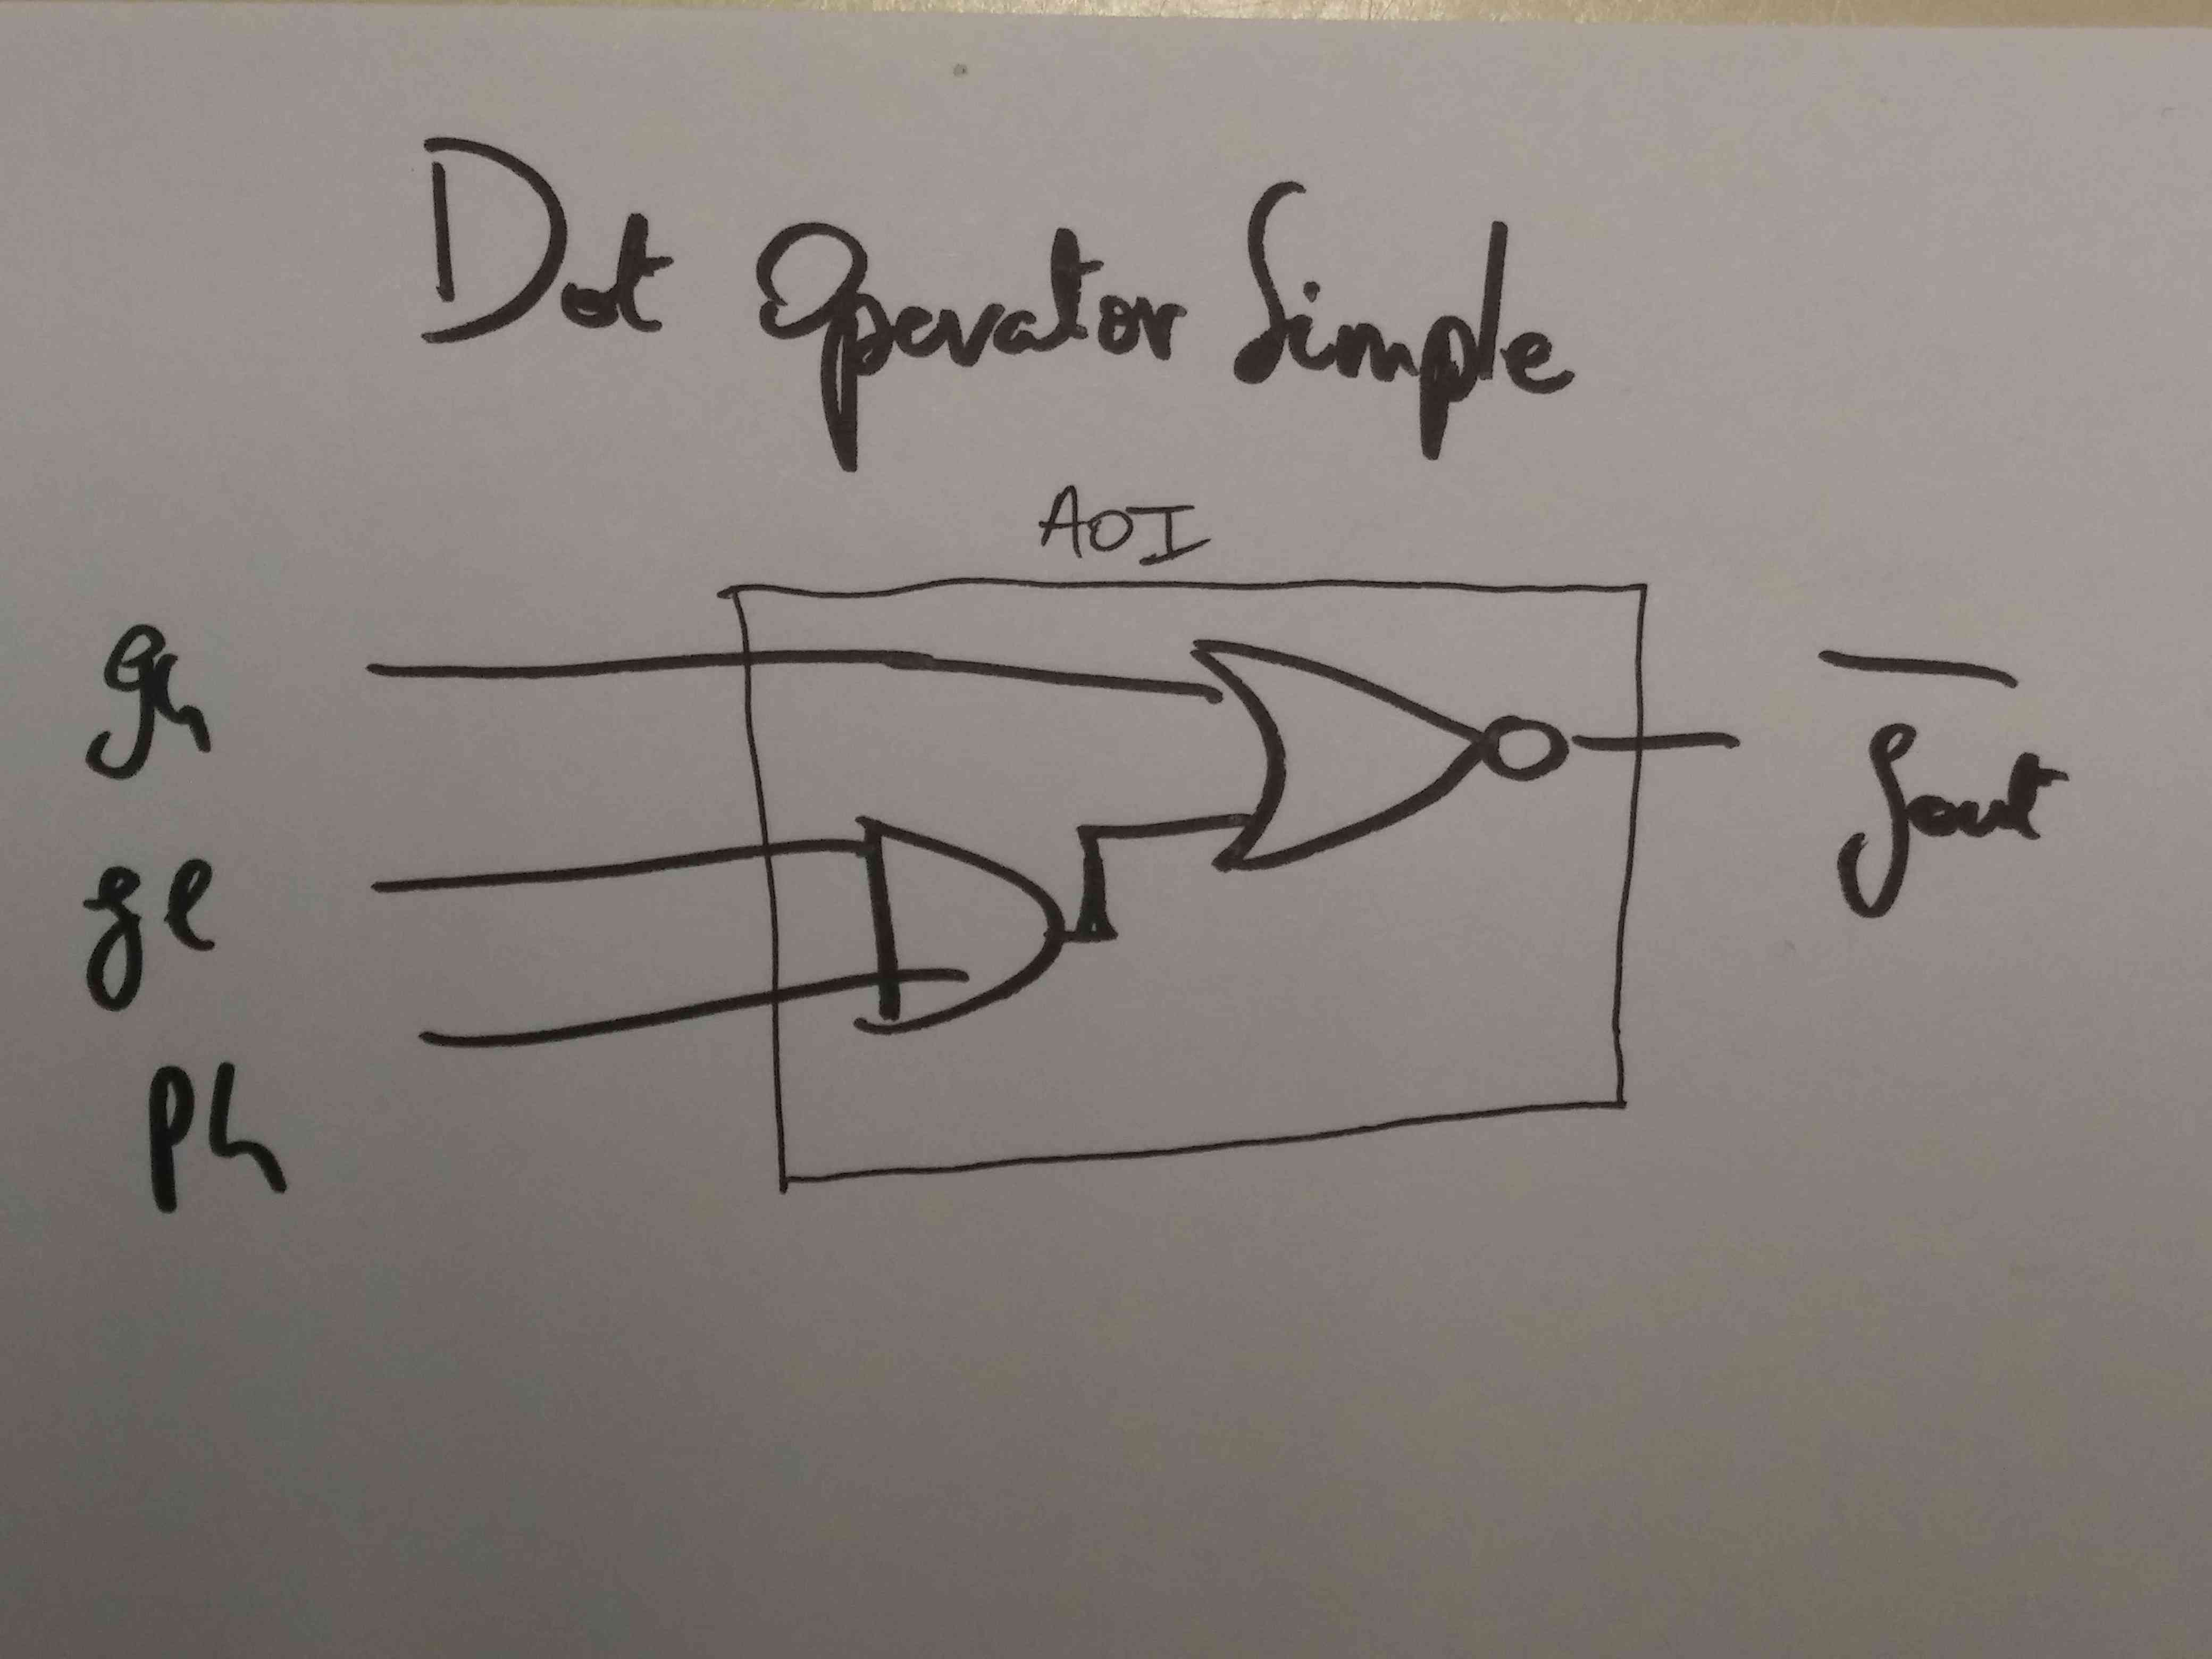 Dot Operator Simple
AOI
gh
gl
ph
gout